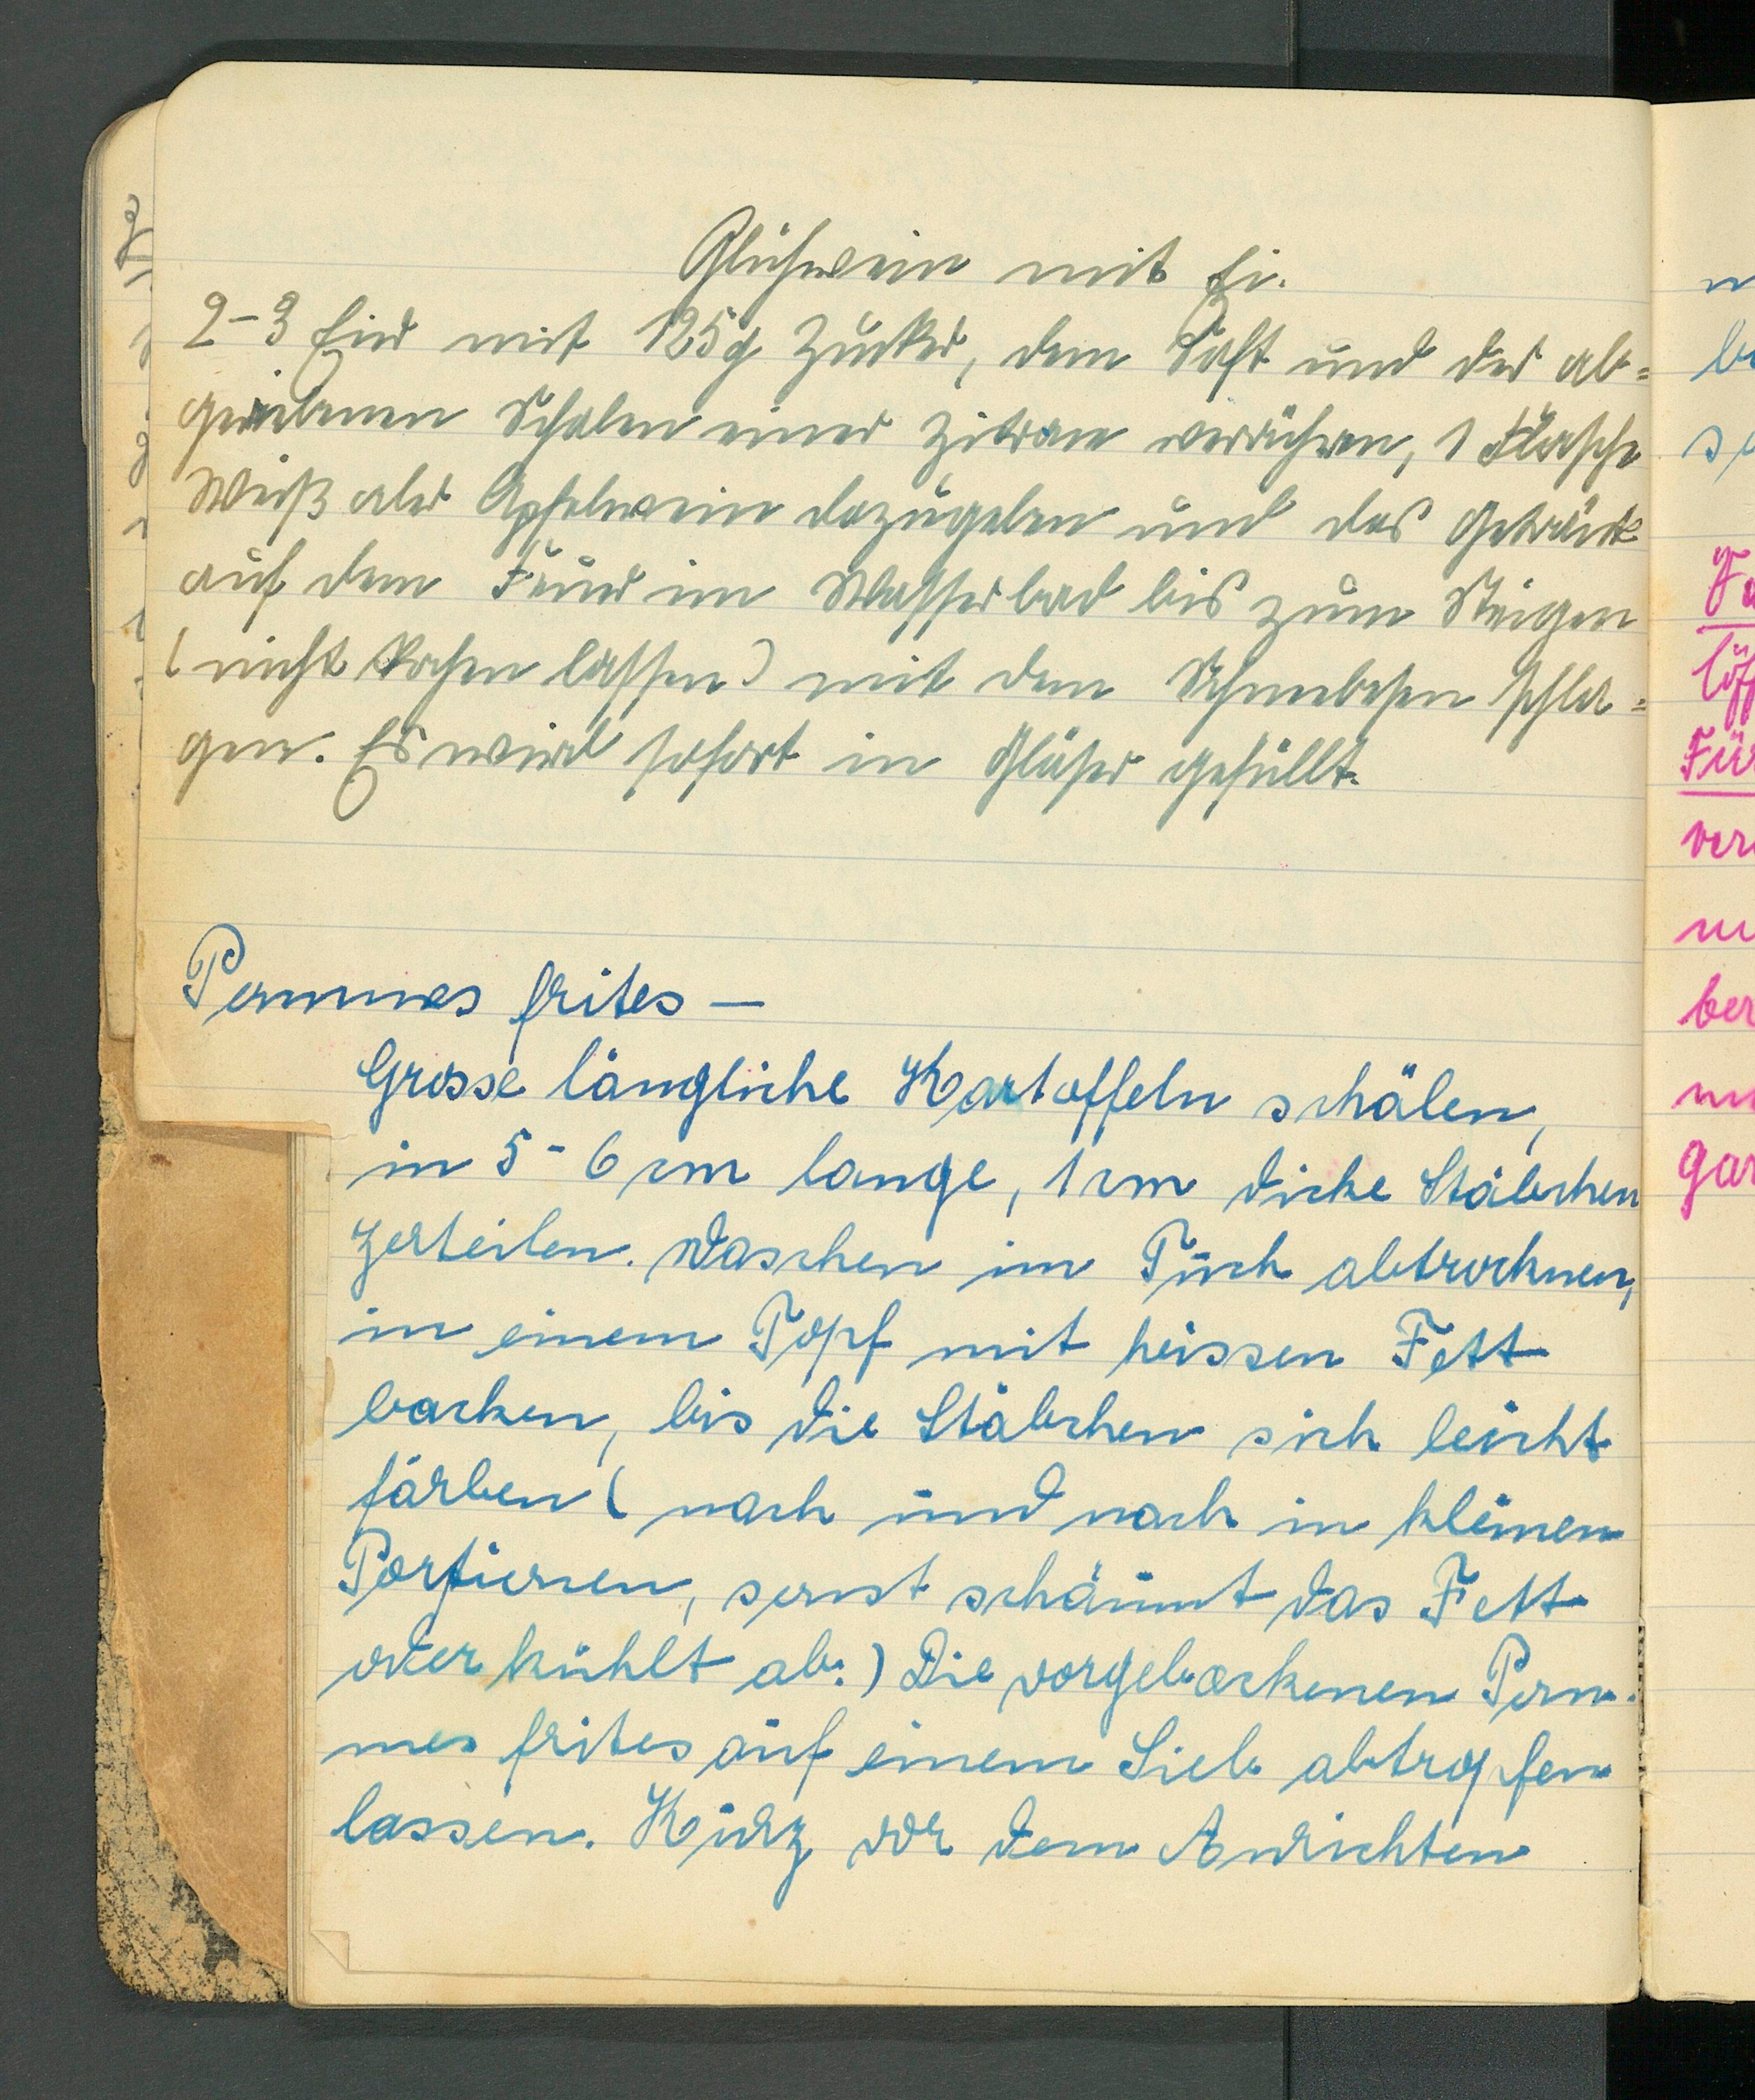 Glühwein mit Ei.
2-3 Eier mit 125g Zucker, dem Saft und der ab=
geriebenen Schalen einer Zitrone verrühren, 1 Flasche
Weiß oder Apfelwein dazugeben und das Getränk
auf dem Feuer im Wasserbad bis zum Steigen
(nicht kochen lassen) mit dem Schneebesen schla=
gen. Es wird sofort in Gläser gefüllt.
Pommes frites —
Grosse längliche Kartoffeln schälen,
in 5-6 cm lange, 1 cm dicke Stäbchen
zerteilen. Waschen im Tuch abtrocknen,
in einem Topf mit heissen Fett
backen, bis die Stäbchen sich leicht
färben (nach und nach in kleinen
Portionen, sonst schäumt das Fett
oder kühlt ab.) Die vorgebackenen Pom-
mes frites auf einem Sieb abtropfen
lassen. Kurz vor dem Anrichten
löff
Für
ver
ber
gar